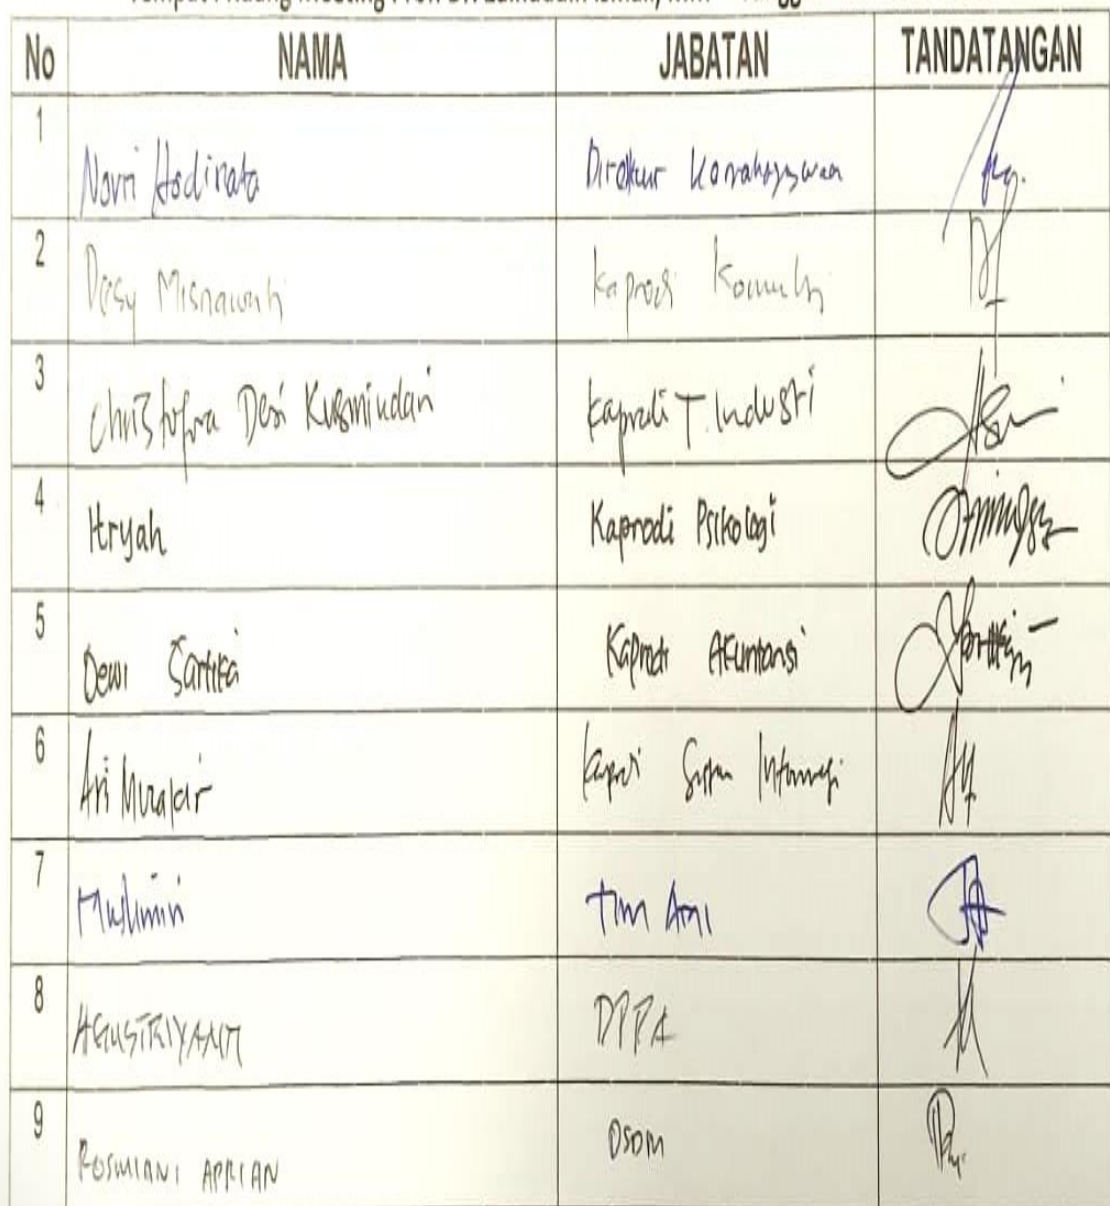 No NAMA JABATAN TANDATANGAN
1 Novri Hadinata Direktur Kemahasiswaan
2 Desy Misnawati Kaprodi Komunikasi
3 Christofora Desi Kusmindari Kaprodi T. Industri
4 Itryah Kaprodi Psikologi
5 Dewi Sartika Kaprodi Akuntansi
6 Ari Muzakir Kaprodi Sistem Informasi
7 Muslimin Tim Ami
8 AGUSTRIYANTI DPPA
9 ROSMIANI APRIAN DSDM